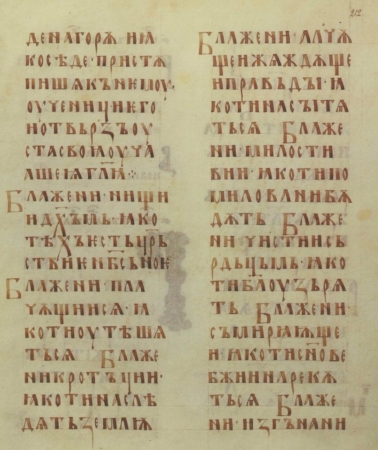 ДЕ НА ГОРѪ И ꙖА
КО СѢДЕ ПРИСТѪ
ПИШѦ КЪ НЕМОУ
ОУЧЕНИЦИ ЕГО
И ОТВЬРЗЪ ОУ
СТА СВОꙖ ОУЧА
АШЕ ѨГЛ҃Ѧ ⁘
БЛАЖЕНИ НИЩИ
И Д҃ХЪМЬ ꙖКО
ТѢХЪ ѤСТЬ Ц҃РЬ
СТВИѤ Н҃БСЬНОѤ
БЛАЖЕНИ ПЛА
ЧѪЩИИСѦ · Ꙗ
КО ТИ ОУТѢШѦ
ТЬСѦ БЛАЖЕ
НИ КРОТЪЦИИ ·
ꙖКО ТИ НАСЛѢ
ДѦТЬ ЗЕМЛѬ
212
БЛАЖЕНИ АЛЧѪ
ЩЕИ ЖѦЖДѪЩЕ
И ПРАВЬДЫ · Ꙗ
КО ТИ НАСЫТѦ
ТЬСѦ БЛАЖЕ
НИ МИЛОСТИ
ВИИ ꙖКО ТИ ПО
МИЛОВАНИ БѪ
ДѪТЬ БЛАЖЕ
НИ ЧИСТИИ СЬ
РДЬЦЬМЬ ꙖКО
ТИ Б҃А ОУЗЬРѦ
ТЬ БЛАЖЕНИ
СЪМИРꙖѬЩЕ
И ꙖКО ТИ С҃НОВЕ
Б҃ЖИИ НАРЕКѪ
ТЬСѦ БЛАЖЕ
НИ ИЗГЪНАНИ